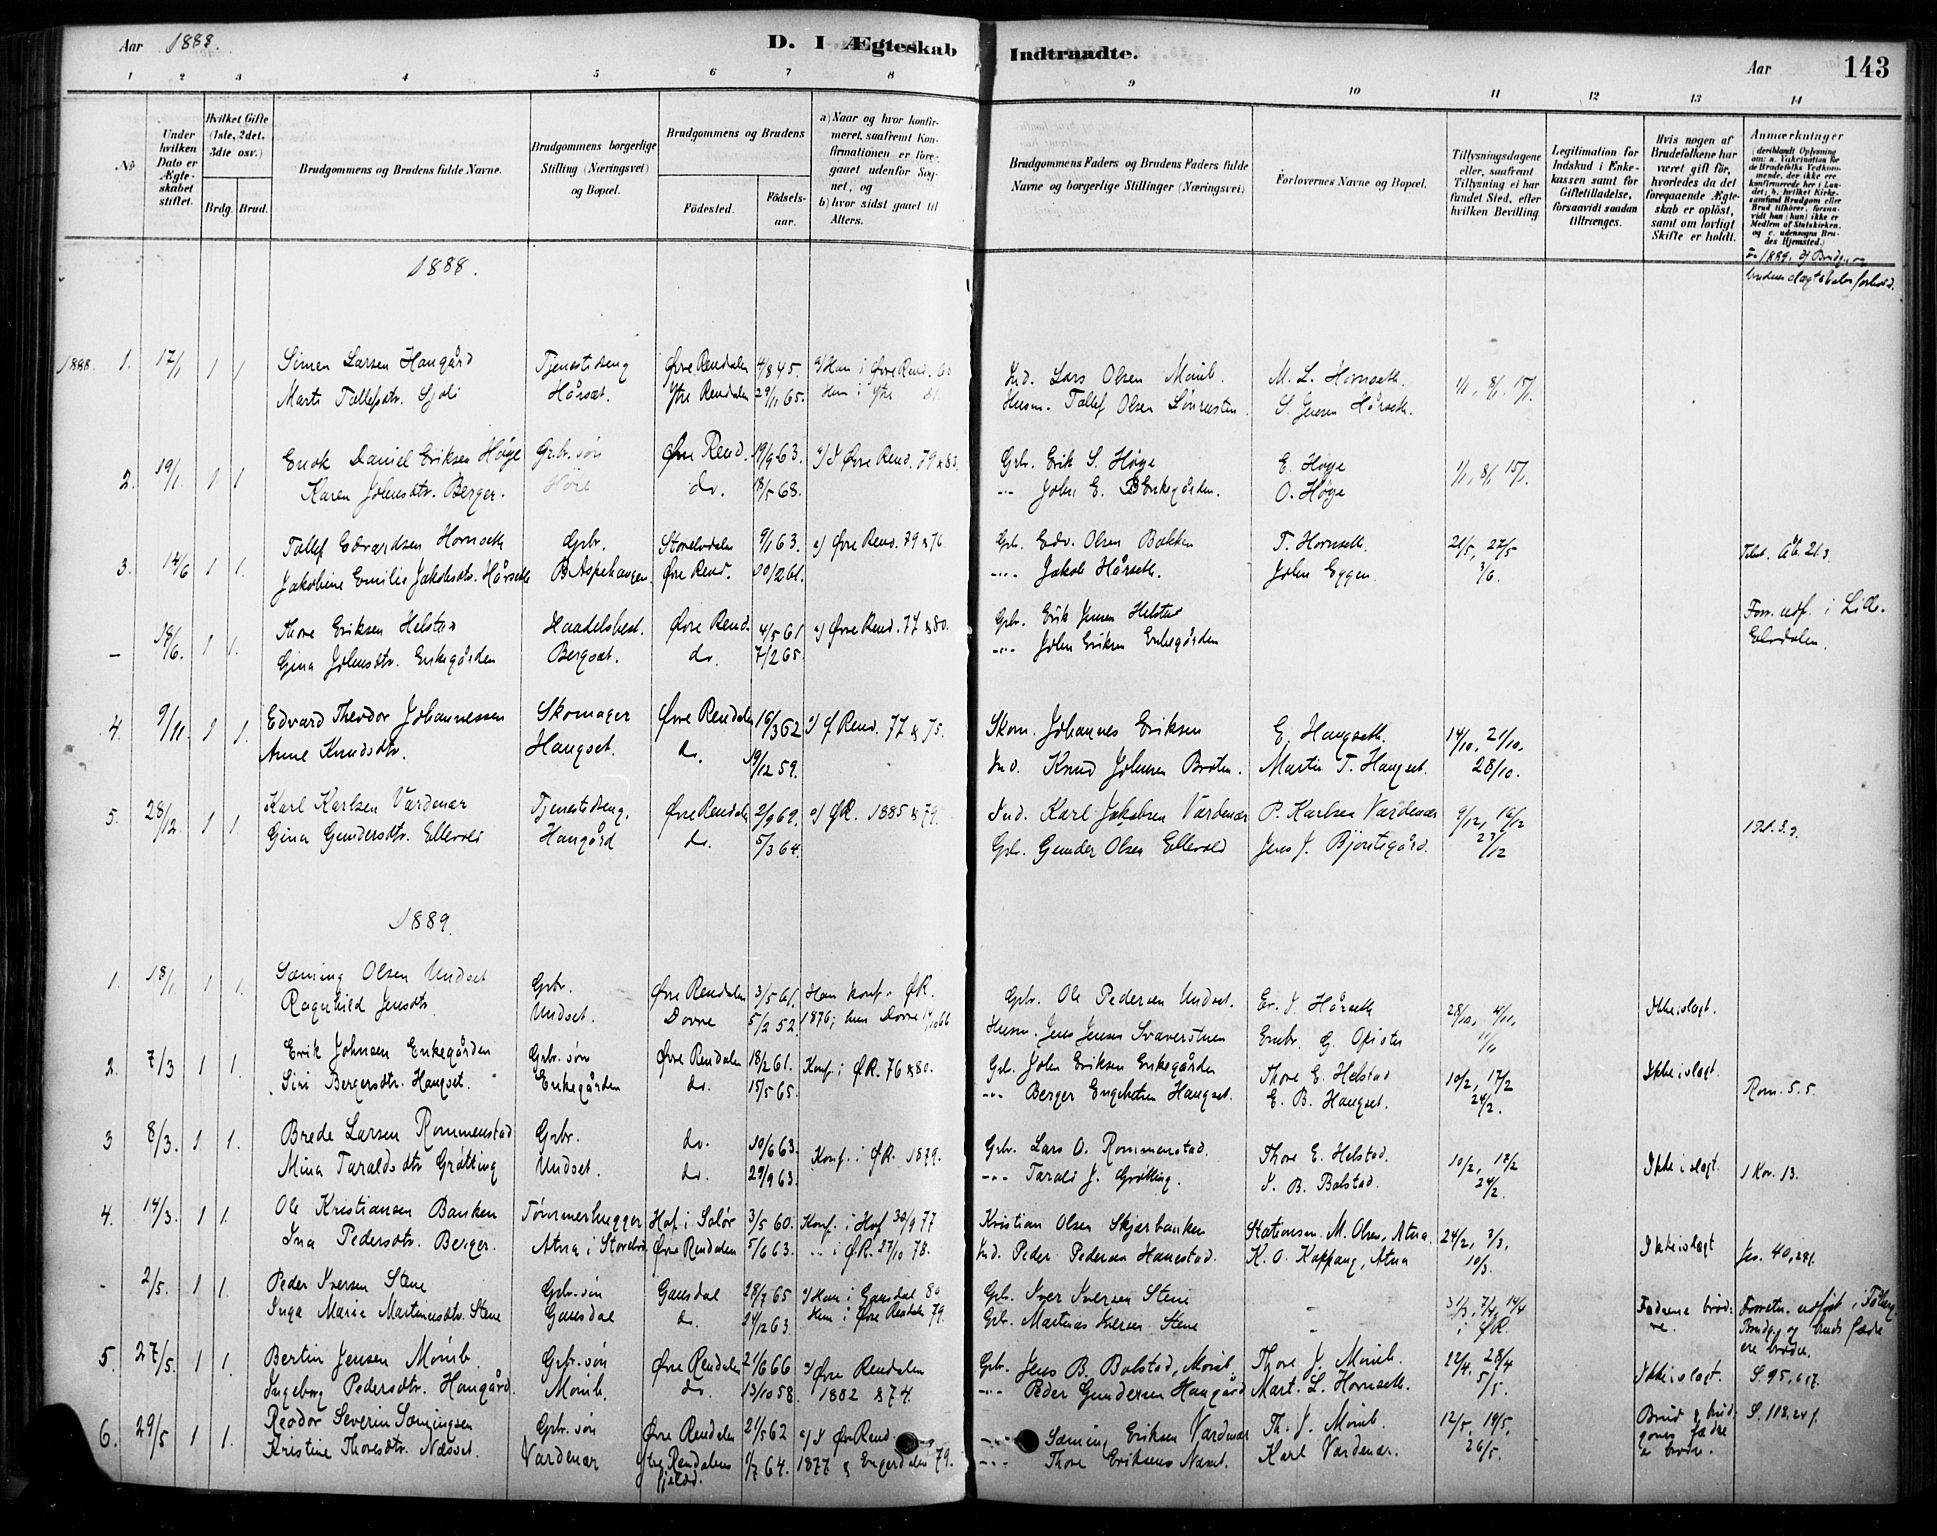 Aar 1888.
D. I Ægteskab Indtraadte.
Aar 143
1 2 3 4 5 6 7 8 9 10 11 12 13 14
No
Under hvilken Dato er Ægteskabet stiftet.
Hvilket Gifte (1ste, 2det, 3die osv.)
Brdg. Brud.
Brudgommens og Brudens fulde Navne.
Brudgommens borgerlige Stilling (Næringsvei) og Bopæl.
Brudgommens og Brudens
Fødested. Fødselsaar.
a) Naar og hvor konfirmeret, saafremt Konfirmationen er foregaaet udenfor Sognet, og
b) hvor sidst gaaet til Alters.
Brudgommens Faders og Brudens Faders fulde Navne og borgerlige Stillinger (Næringsvei)
Forlovernes Navne og Bopæl.
Tillysningsdagene eller, saafremt Tillysning ei har fundet Sted, efter hvilken Bevilling
Legitimation for Indskud i Enkekassen samt for Giftetilladelse, forsaavidt saadan tiltrænges.
Hvis nogen af Brudefolkene har været gift før, hvorledes da det foregaaende Ægteskab er opløst, samt om lovligt Skifte er holdt.
Anmærkninger
1888.
1888. 1. 17/1 1 1 Simen Larsen Haugård Tjenestedreng Øvre Rendalen 4/8 45. a) Han i Øvre Rend. 60 Ind. Lars Olsen Monib. M. L. Hornseth. 1/1, 8/1, 15/1.
Marte Tollefsdtr. Sjøli Hårset. Ytre Rendalen 29/11 65. Hun i Ytre 81. Husm. Tollef Olsen S. Jensen Hårseth.
2. 19/1. 1 1 Enok Daniel Eriksen Høye Grb. søn Øvre Rend. 19/9 63. a) I Øvre Rend. 79 & 83. Grb. Erik S. Høye E. Høye 1/1, 8/1 15/1.
Karen Johnsdtr. Berger. Høie do. 18/5 68. John E. Enkegården. O. Høye
3. 14/6 1 1. Tollef Edvardsen Hornseth Grbr. Storelvdalen 9/1 63. a) Øvre Rend. 79 & 76 Grb. Edv. Olsen Bakken T. Hornseth. 21/5, 27/5
Jakobine Emilie Jakobsdtr. Hårseth B. Aspehaugen Øvre Rend. 30/2 61. Jakob Hårseth. John Eggen. 3/6. Åb. 21.3
– 18/6. 1 1. Thore Eriksen Helstad Haadelsbest. Øvre Rend. 4/5 61 a) Øvre Rend. 77 & 80. Grb. Erik Jensen Helstad Forr. udf. i Lille-
Gina Johnsdtr. Enkegården Bergset. do. 7/2 65. John Eriksen Enkegården Elvdalen.
4. 9/11. 1 1. Edvard Theodor Johannessen Skomager Øvre Rendalen 16/3 62 a) Ø Rend. 77 & 75. Skom. Johannes Eriksen E. Haugseth. 14/10, 21/10,
Anne Knudsdtr. Haugset. do. 19/12 59. Ind. Knud Johnsen Bråten. Martin T. Haugset. 28/10.
5. 28/12. 1 1. Karl Karlsen Vardenær Tjenestedreng. Øvre Rendalen 2/9 69. a) ØR. 1885 & 79. Ind. Karl Jakobsen Vardenær P. Karlsen Vardenær 9/12, 16/12
Gina Gundersdtr. Ellevold Haugård do. 5/3 64. Grb. Gunder Olsen Ellevold Jens J. Bjøntegård. 23/12
1889.
1. 18/1. 1 1. Sæming Olsen Undset Grbr. Øvre Rendalen 3/5 61. Han konf. i ØR. Grb. Ole Pedersen Undset. Er. J. Hårseth 28/10, 4/11, Ikke i slægt.
Ragnhild Jensdtr. Undset. Dovre 5/2 52. 1876; hun Dovre 14/10 66 Husm. Jens Jensen Svaverstuen Embr. G. 11/11
2. 7/3 1 1. Erik Johnsen Enkegården Grb. søn Øvre Rendalen 18/2 61. Konf. i ØR. 76 & 80. Grb. John Eriksen Enkegården Thore E. Helstad 10/2, 17/2 Ikke i slægt.
Siri Bergersdtr. Haugset. Enkegården do. 15/5 65. Berger Engebretsen Haugset. E. B. Haugset. 24/2. Rom. 5. 5.
3 8/3. 1 1. Brede Larsen Rommenstad Grbr. do. 10/6 63. Konf. i ØR. 1879. Grb. Lars O. Rommenstad. Thore E. Helstad. 10/2, 17/2 Ikke i slægt. 1 Kor. 13.
Mina Taraldsdtr Grøtting Undset. do. 29/9 63. Tarald J. Grøtting. J. B. Bolstad. 24/2.
4. 14/3. 1 1. Ole Kristiansen Banken Tømmerhugger Hof i Solør 3/5 60. Konf. i Hof 30/9 77 Kristian Olsen Skjærbanken Stationsm. M. Olsen, Atna. 24/2, 3/3, Ikke i slægt Jes. 40, 28 f.
Ina Pedersdtr. Berger. Atna i Storelvd. Øvre Rendalen 5/6 63. i ØR. 27/10 78. Ind. Peder Pedersen Hanestad. K. O. Koppang, Atna 10/3.
– 2/5. 1 1. Peder Iversen Stene Grb. søn Gausdal 28/7 65 a) Han i Gausdal 80 Grb. Iver Iversen Stene – 31/3, 7/4, 14/4 Fædrene brød- Forretn. udført i
Inga Marie Martinusdtr. Stene Gausdal do. 24/12 63. Hun i Øvre Rendalen 79. Grb. Martinus Iversen Stene i ØR. re. Brudg. og bruds fædre ere brødre.
5. 27/5. 1 1. Bertin Jensen Monib. Grb. søn Øvre Rendalen 21/6 66 a) Øvre Rendalen Grb. Jens B. Bolstad, Monib. Thore J. Monib. 22/4, 28/4 Ikke i slægt. S. 95, 6 & 7.
Ingeborg Pedersdtr. Haugård. Monib. do. 13/10 58. 1882 & 74. Peder Gundersen Haugård Mart. L. Hornseth. 5/5.
6. 29/5 1 1. Reodor Severin Sæmingsen Grb. søn Øvre Rendalen 21/5 62 a) I Øvre Rend. Sæming Eriksen Vardenær Th. J. Monib. 12/5, 19/5, Brud & brud- S. 118, 24 f.
Kristine Thoresdtr. Næsset. Vardenær Ytre Rendalens fjeld. 9/7 64. 1877 & Engerdalen 79. Thore Eriksens Næset. Karl Vardenær. 26/5. goms fædre er brødre.